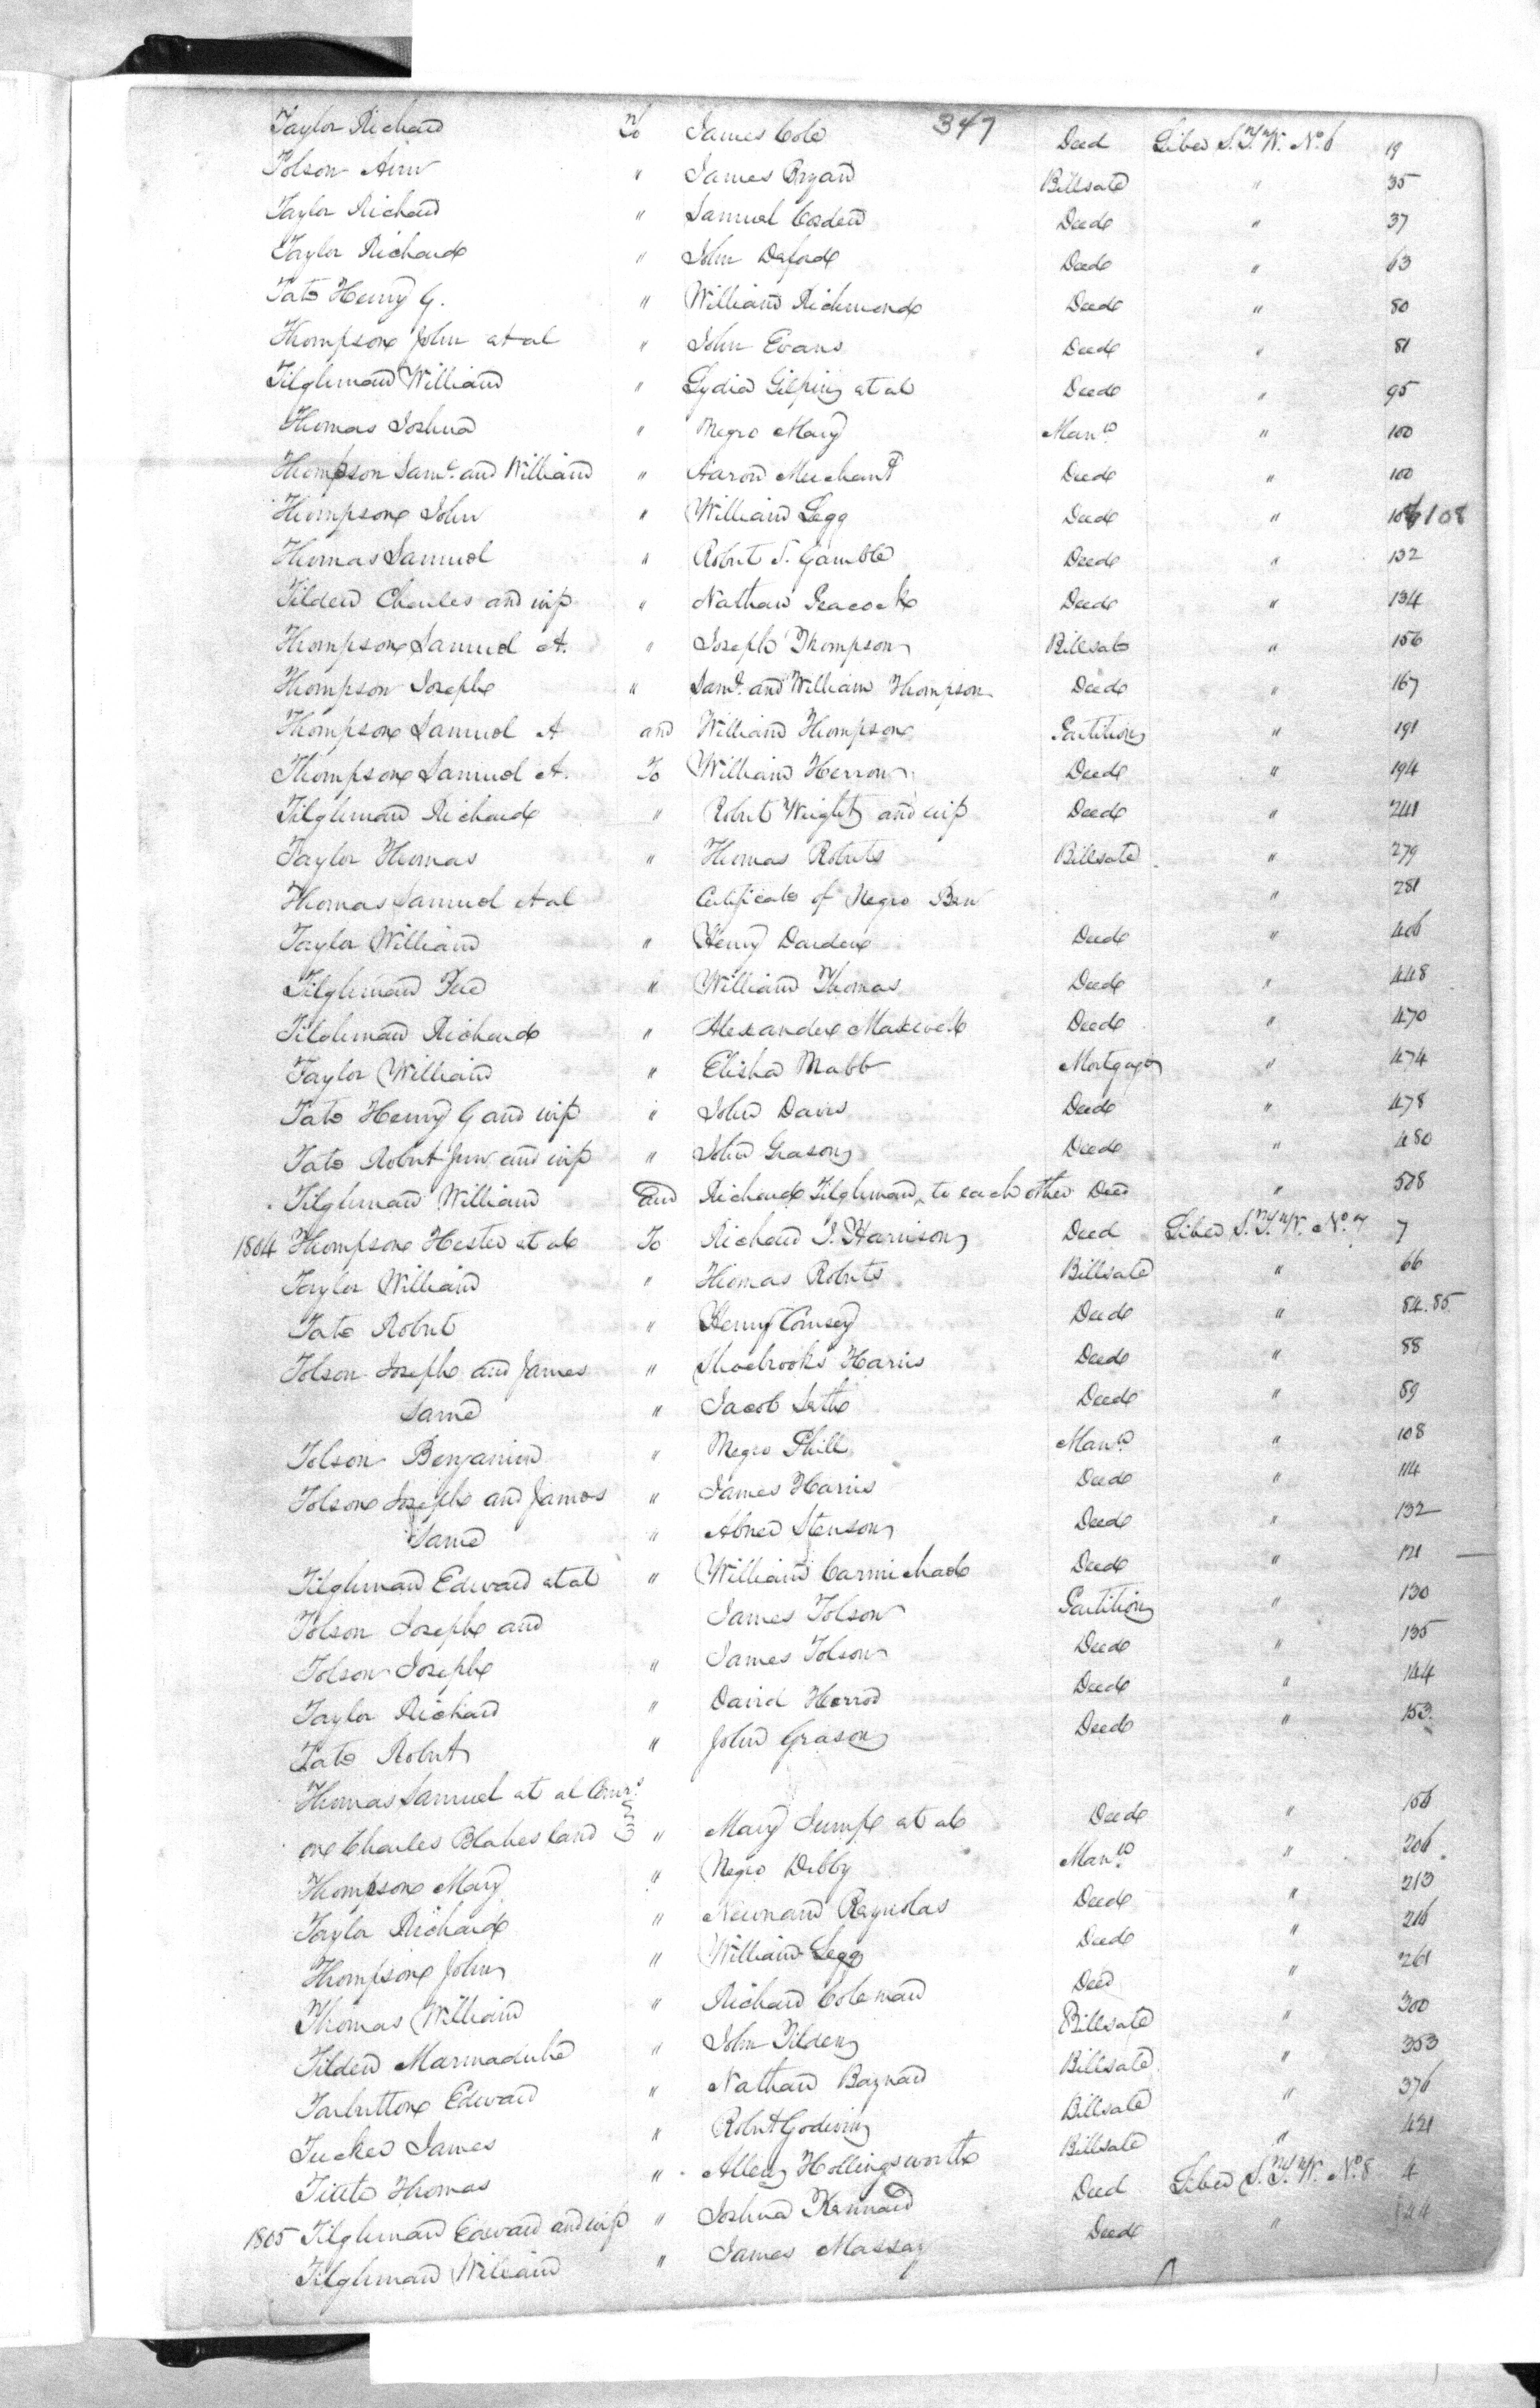 347
Taylor Richard To James Cole Deed Liber S.T.W. No. 6 19
Tolson Ann " James Bryan Billsale " 35
Taylor Richard " Samuel Cosden Deed " 37
Taylor Richard " John Deford Deed " 63
Tate Henry G. " William Richmond Deed " 80
Thompson John et al " John Evans Deed " 81
Tilghman William " Lydia Gilpin et al Deed " 95
Thomas Joshua " Negro Mary Mann " 100
Thompson Saml. and William " Aaron Merchant Deed " 100
Thompson John " William Legg Deed " 108
Thomas Samuel " Robert S. Gamble Deed " 132
Tilden Charles and wife " Nathan Peacock Deed " 134
Thompson Samuel A. " Joseph Thompson Billsale " 156
Thompson Joseph " Saml. and William Thompson Deed " 167
Thompson Samuel A and William Thompson Partition " 191
Thompson Samuel A. To William Herron Deed " 194
Tilghman Richard " Robert Wright and wife Deed " 241
Taylor Thomas " Thomas Roberts Billsale " 279
Thomas Samuel et al Certificate of Negro Ben " 281
Taylor William " Henry Darden Deed " 406
Tilghman " William Thomas Deed " 448
Tilghman Richard " Alexander Maxwell Deed " 470
Taylor William " Elisha Mabb Mortgage " 474
Tate Henry G and wife " John Davis Deed " 478
Tate Robert Junr and wife " John Grason Deed " 480
Tilghman William and Richard Tilghman to each other Deed " 528
1804 Thompson Hester et al To Richard I. Harrison Deed Liber S.T.W. No. 7 7
Taylor William " Thomas Roberts Billsale " 66
Tate Robert " Henry Coursey Deed " 84.85
Tolson Joseph and James " Shoebrooks Harris Deed " 88
Same " Jacob Seth Deed " 89
Tolson Benjamin " Negro Phill Mann " 108
Tolson Joseph and James " James Harris Deed " 114
Same " Abner Stenson Deed " 132
Tilghman Edward et al " William Carmichael Deed " 121
Tolson Joseph and James Tolson Partition " 130
Tolson Joseph " James Tolson Deed " 135
Taylor Richard " David Herrod Deed " 144
Tate Robert " John Grason Deed " 153
Thomas Samuel et al Comrs
on Charles Blakes land " Mary Jump et al Deed " 156
Thompson Mary " Negro Debby Mann " 206
Taylor Richard " Newnam Reynolds Deed " 213
Thompson John " William Legg Deed " 216
Thomas William " Richard Coleman Deed " 261
Tilden Marmaduke " John Tilden Billsale " 300
Tarbutton Edward " Nathan Baynard Billsale " 353
Tucker James " Robert Godwin Billsale " 376
Thomas " Allen Hollingsworth Billsale " 421
1805 Tilghman Edward and wife " Joshua Kennard Deed Liber S.T.W. No. 8 4
Tilghman William " James Massey Deed "